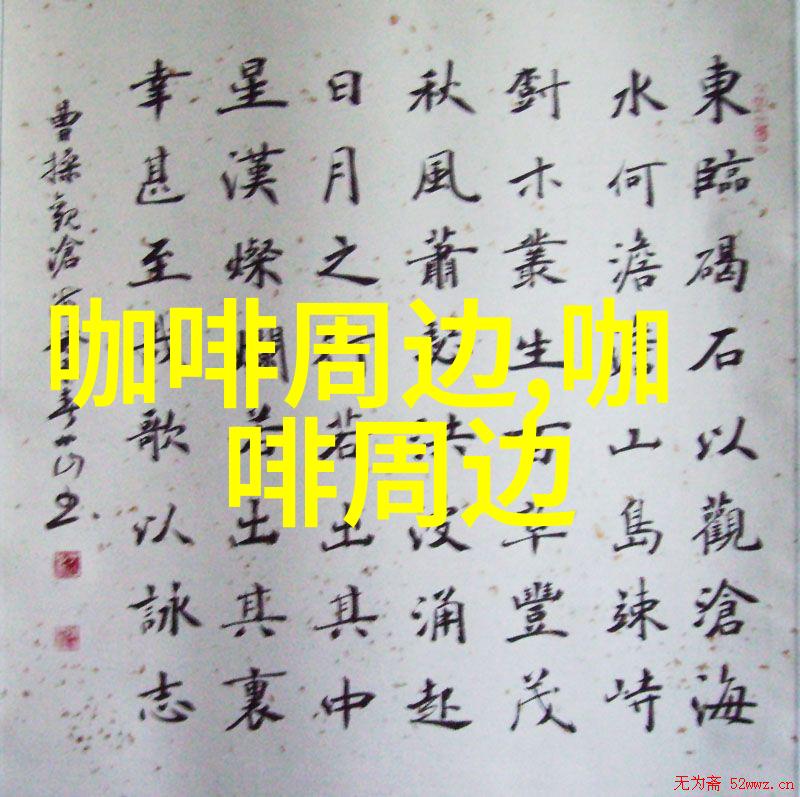 東臨碣石以觀滄海
水何澹澹山島竦峙
木叢生百草豐茂
秋風蕭瑟洪波涌起
日月之行若出其中
星漢燦爛若出其裏
幸甚至哉歌以詠志
曹操觀滄
咖啡周边,咖
啡周边
无为斋 52wwz.cn